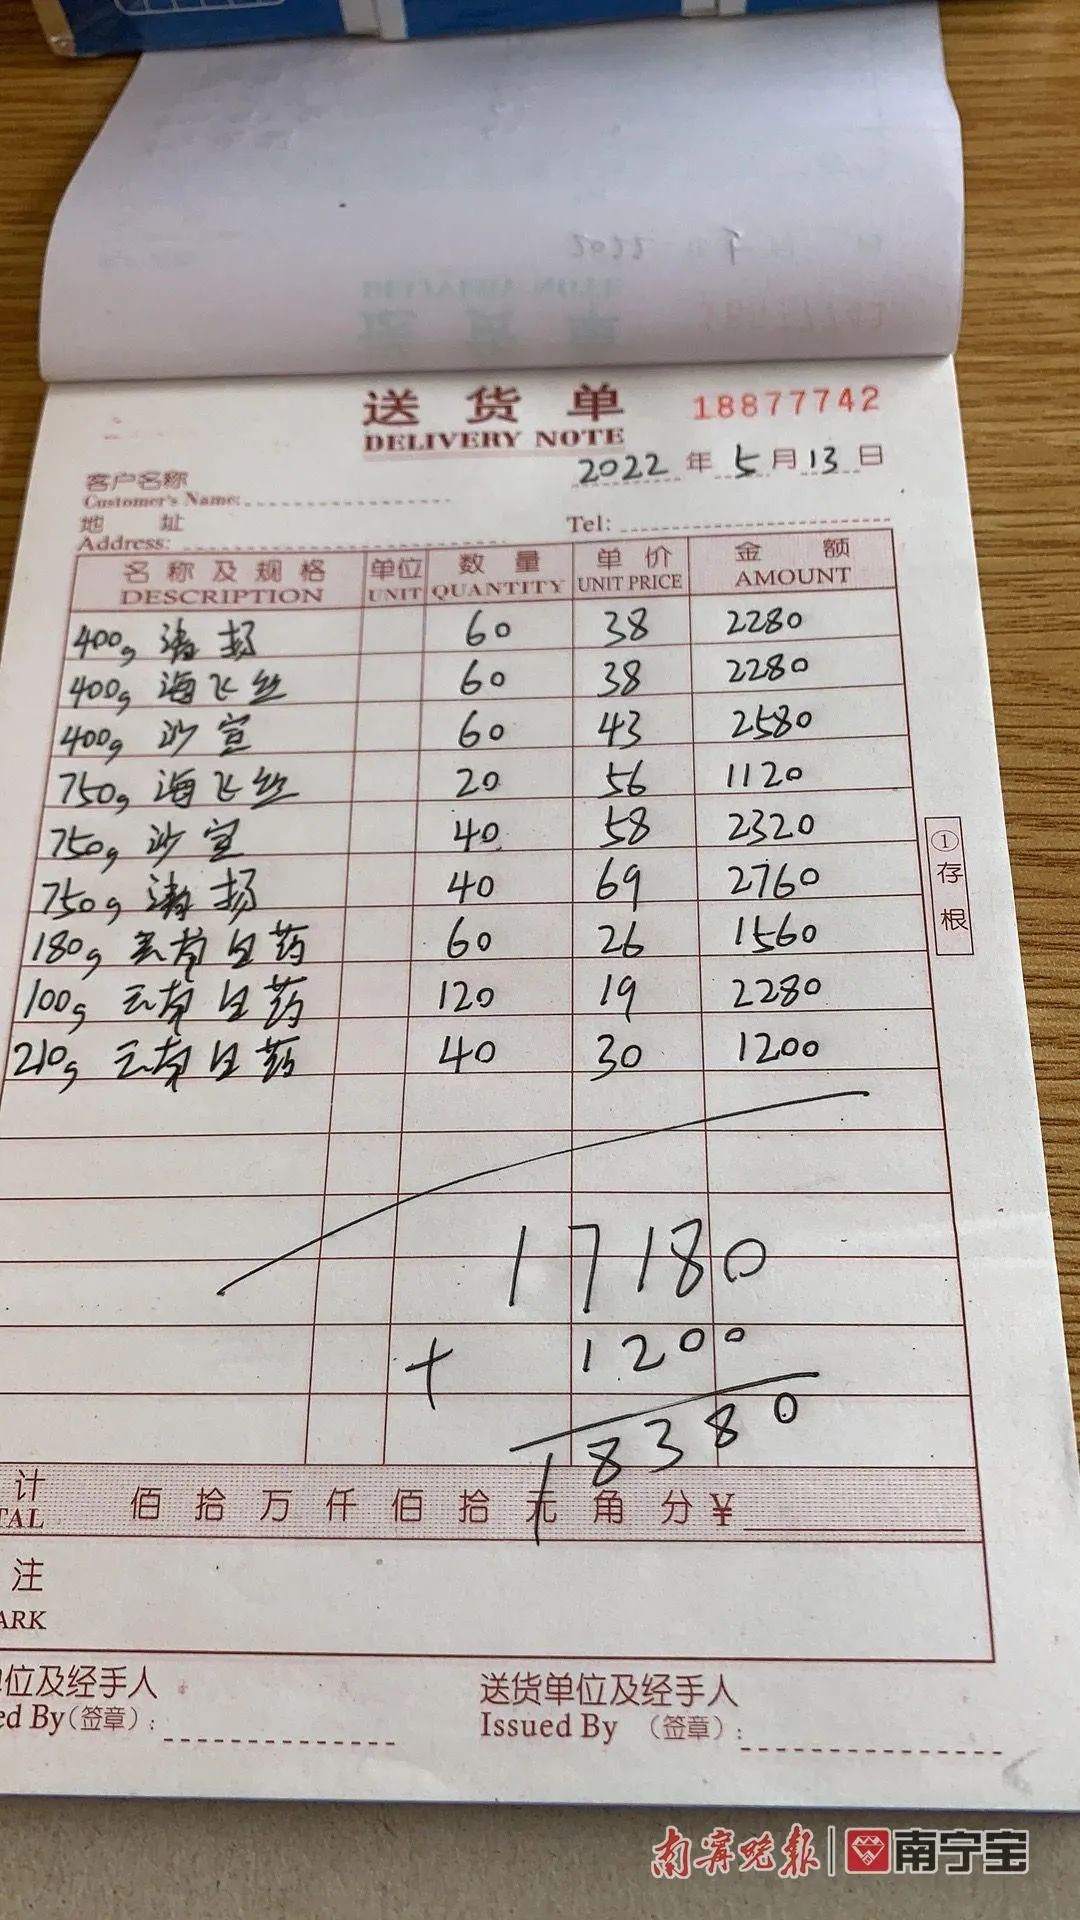 送货单 18877742
DELIVERY NOTE
2022年5月13日
客户名称
Customer's Name:
地 址
Address: Tel:
名称及规格 单位 数量 单价 金额
DESCRIPTION UNIT QUANTITY UNIT PRICE AMOUNT
400g 清扬 60 38 2280
400g 海飞丝 60 38 2280
400g 沙宣 60 43 2580
750g 海飞丝 20 56 1120
750g 沙宣 40 58 2320
750g 清扬 40 69 2760
180g 云南白药 60 26 1560
100g 云南白药 120 19 2280
210g 云南白药 40 30 1200
①存根
17180
+ 1200
18380
计 佰拾万仟佰拾元角分¥
TAL
注
ARK
位及经手人 送货单位及经手人
ed By(签章): Issued By (签章):
南宁晚报 | 南宁宝